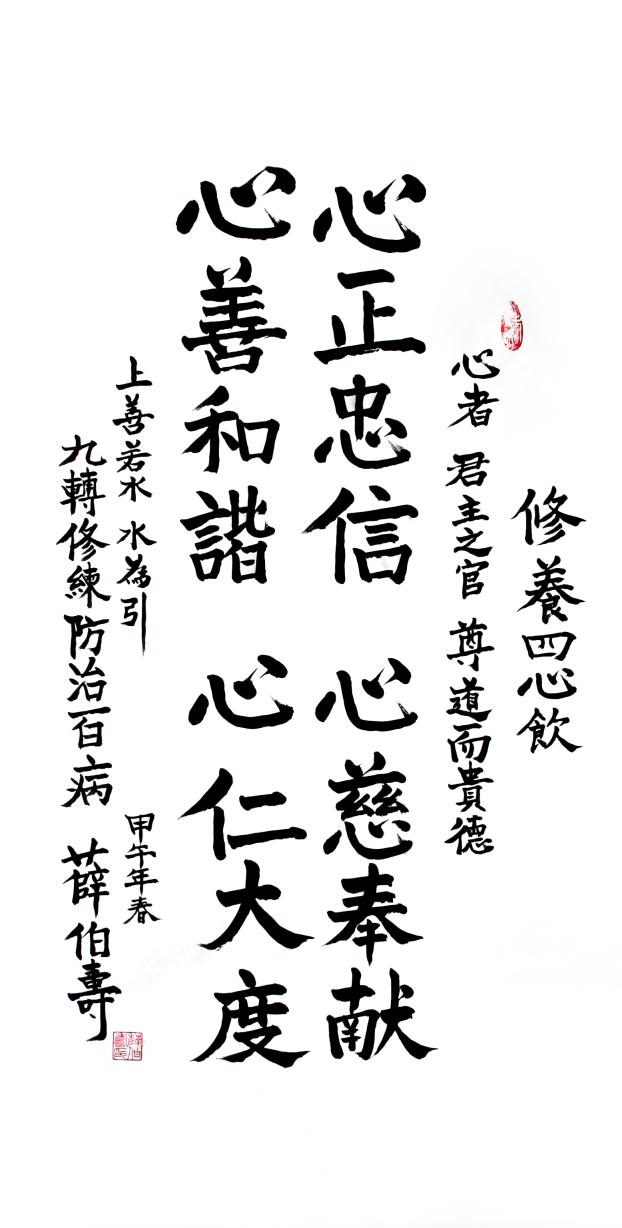 修養四心飲
心者 君主之官 尊道而貴德
心正忠信 心慈奉献
心善和諧 心仁大度
上善若水 水為引
九轉修練防治百病
甲午年春
薛伯壽